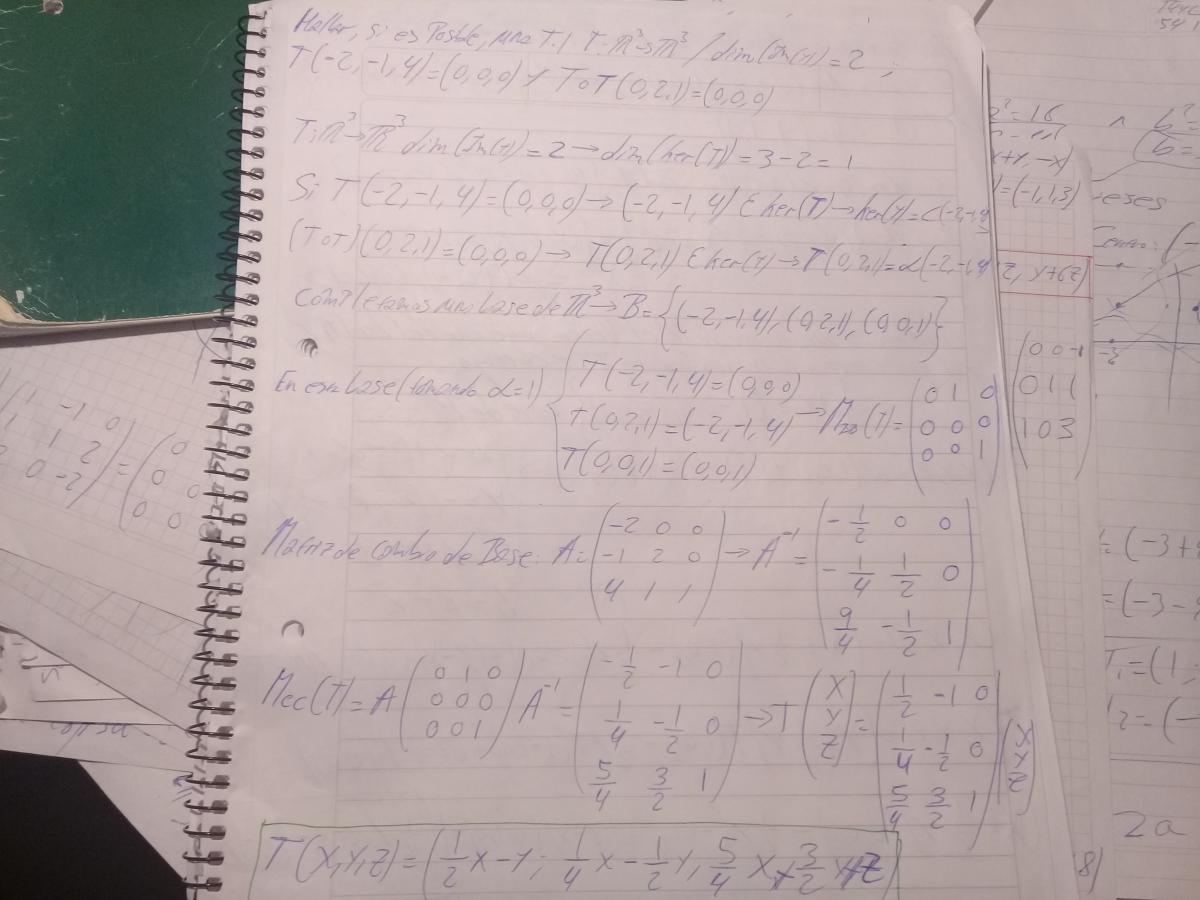 Hallar, si es Posible, una T.l T:ℝ³→ℝ³ / dim(Im(T)) = 2 ;
T(-2,-1,4)=(0,0,0) y T∘T(0,2,1)=(0,0,0)
T:ℝ³→ℝ³ dim(Im(T)) = 2 → dim(ker(T)) = 3-2 = 1
Si T(-2,-1,4)=(0,0,0) → (-2,-1,4) ∈ ker(T) → ker(T) = <(-2,-1,4
(T∘T)(0,2,1)=(0,0,0) → T(0,2,1) ∈ ker(T) → T(0,2,1)=α(-2,-1,4
Completamos una base de ℝ³ → B={(-2,-1,4),(0,2,1),(0,0,1)}
En esa base (tomando α=1)
T(-2,-1,4)=(0,0,0)
T(0,2,1)=(-2,-1,4)
T(0,0,1)=(0,0,1)
→ M_BB(T)=
0 1 0
0 0 0
0 0 1
Matriz de cambio de Base: A=
-2 0 0
-1 2 0
4 1 1
→ A⁻¹ =
-1/2 0 0
-1/4 1/2 0
9/4 -1/2 1
Mcc(T)= A
0 1 0
0 0 0
0 0 1
A⁻¹ =
-1/2 -1 0
1/4 -1/2 0
5/4 3/2 1
→ T
X
Y
Z
=
1/2 -1 0
1/4 -1/2 0
5/4 3/2 1
X
Y
Z
T(X,Y,Z)=(1/2X-Y; 1/4X-1/2Y, 5/4X+3/2Y+Z)
²=16
x+y,-x)
=(-1,1,3)
z, y+6z)
0 0 -1
0 1 1
1 0 3
eses
Centro: (-
-2
(-3+
=(-3-
T₁=(1,
2=(-
2a
8)
1 -1 0
1 2
0 -2
=
0
0 0
0 0